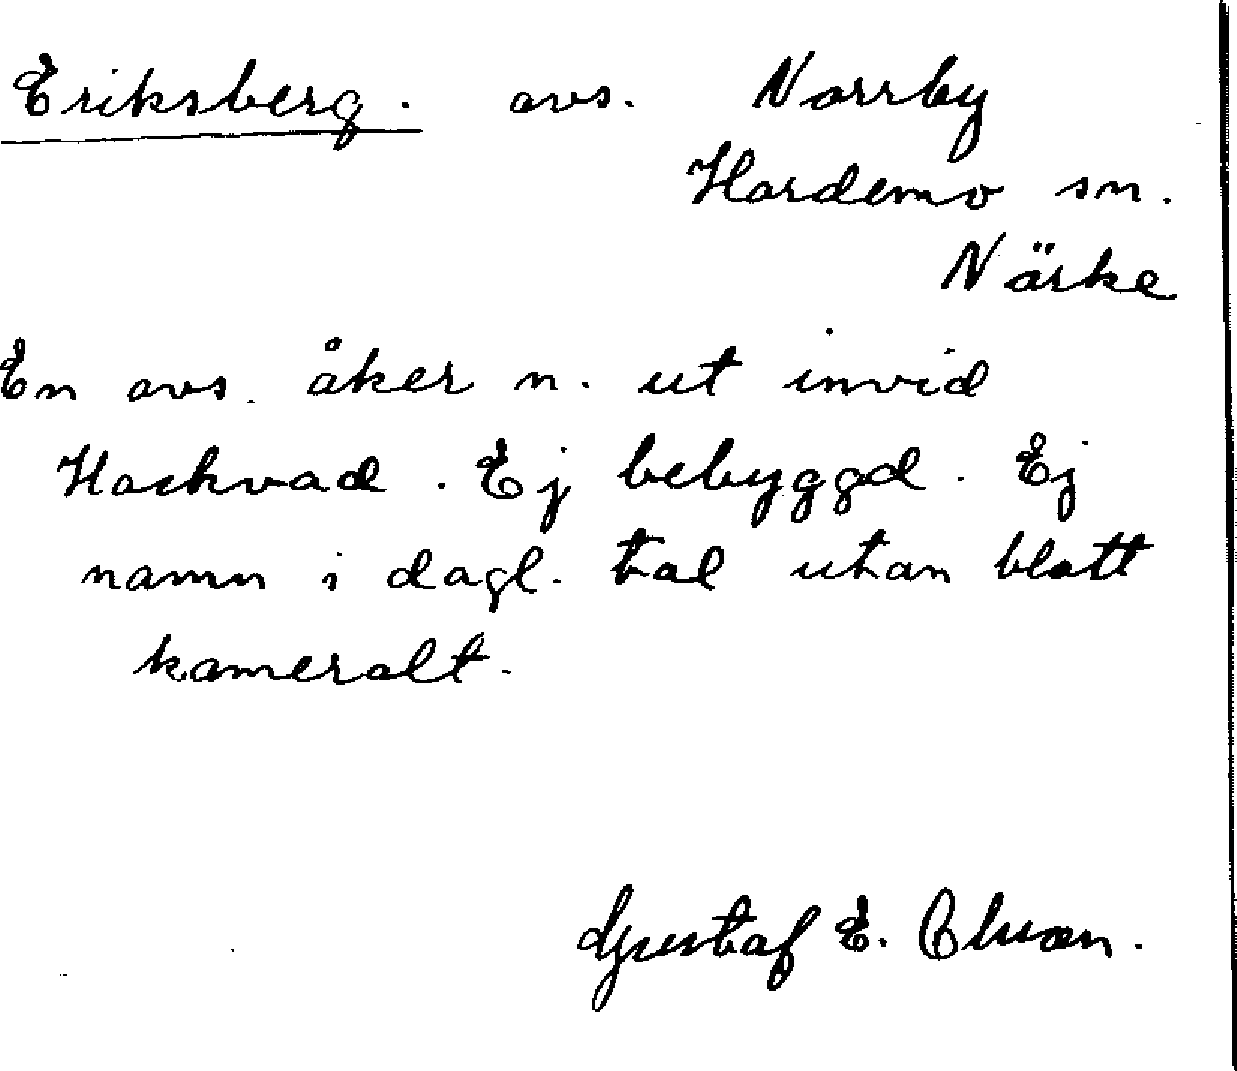 Eriksberg. avs. Norrby
Hardemo sn.
Närke
En avs. åker n. ut invid
Hackvad. Ej bebyggd. Ej
namn i dagl. tal utan blott
kameralt.
Gustaf E.